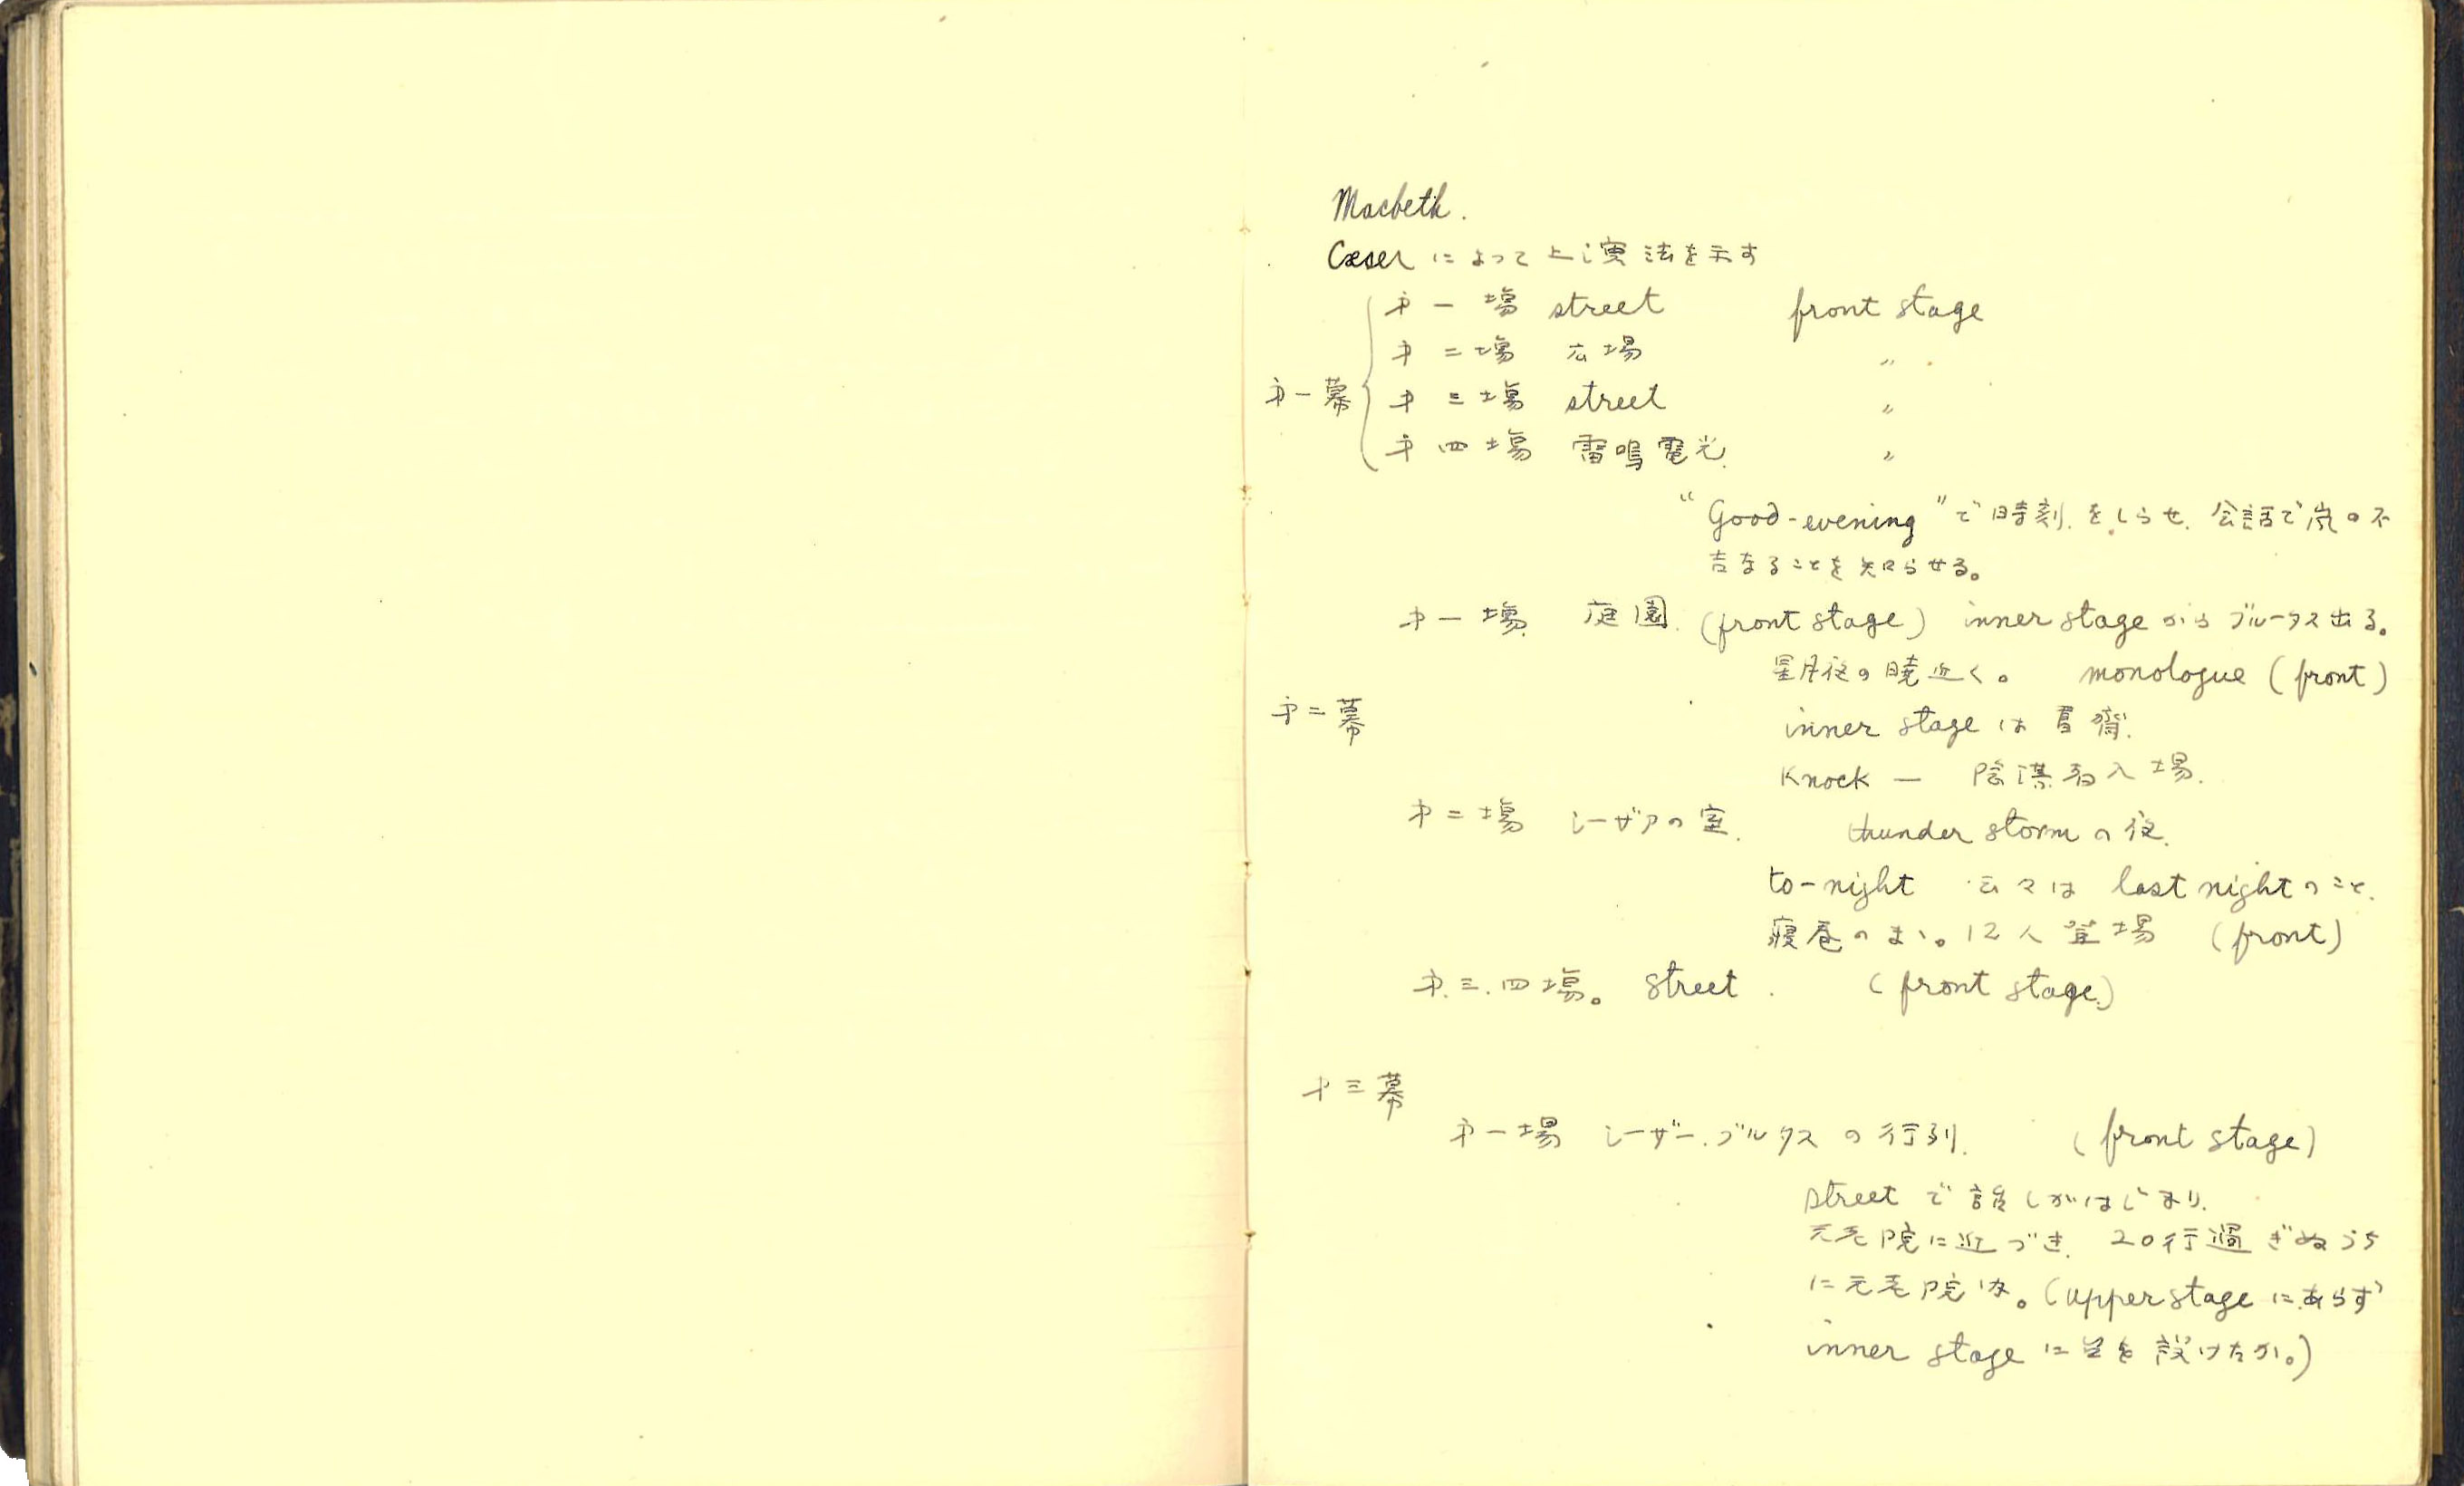 Macbeth.
Cæser によって上演法を示す
才一場 street front stage
才二場 広場 〃
才一幕 才三場 street 〃
才四場 雷鳴電光. 〃
"Good-evening"で時刻をしらせ. 会話で嵐の不
吉なることを知らせる。
才一場 庭園. (front stage) inner stage からブルータス出る。
星月夜の暁近く。 monologue (front)
才二幕
inner stage は書斎.
Knock — 陰謀者入場.
才二場 シーザアの室. thunder storm の夜.
to-night 云々は last night のこと.
寝巻のまゝ。12人登場 (front)
才.三.四場。 Street. (front stage.)
才三幕
才一場 シーザー.ブルタスの行列. (front stage)
street で話しがはじまり.
元老院に近づき. 20行過ぎぬうち
に元老院内。(upper stage にあらず
inner stage に台を設けたか。)